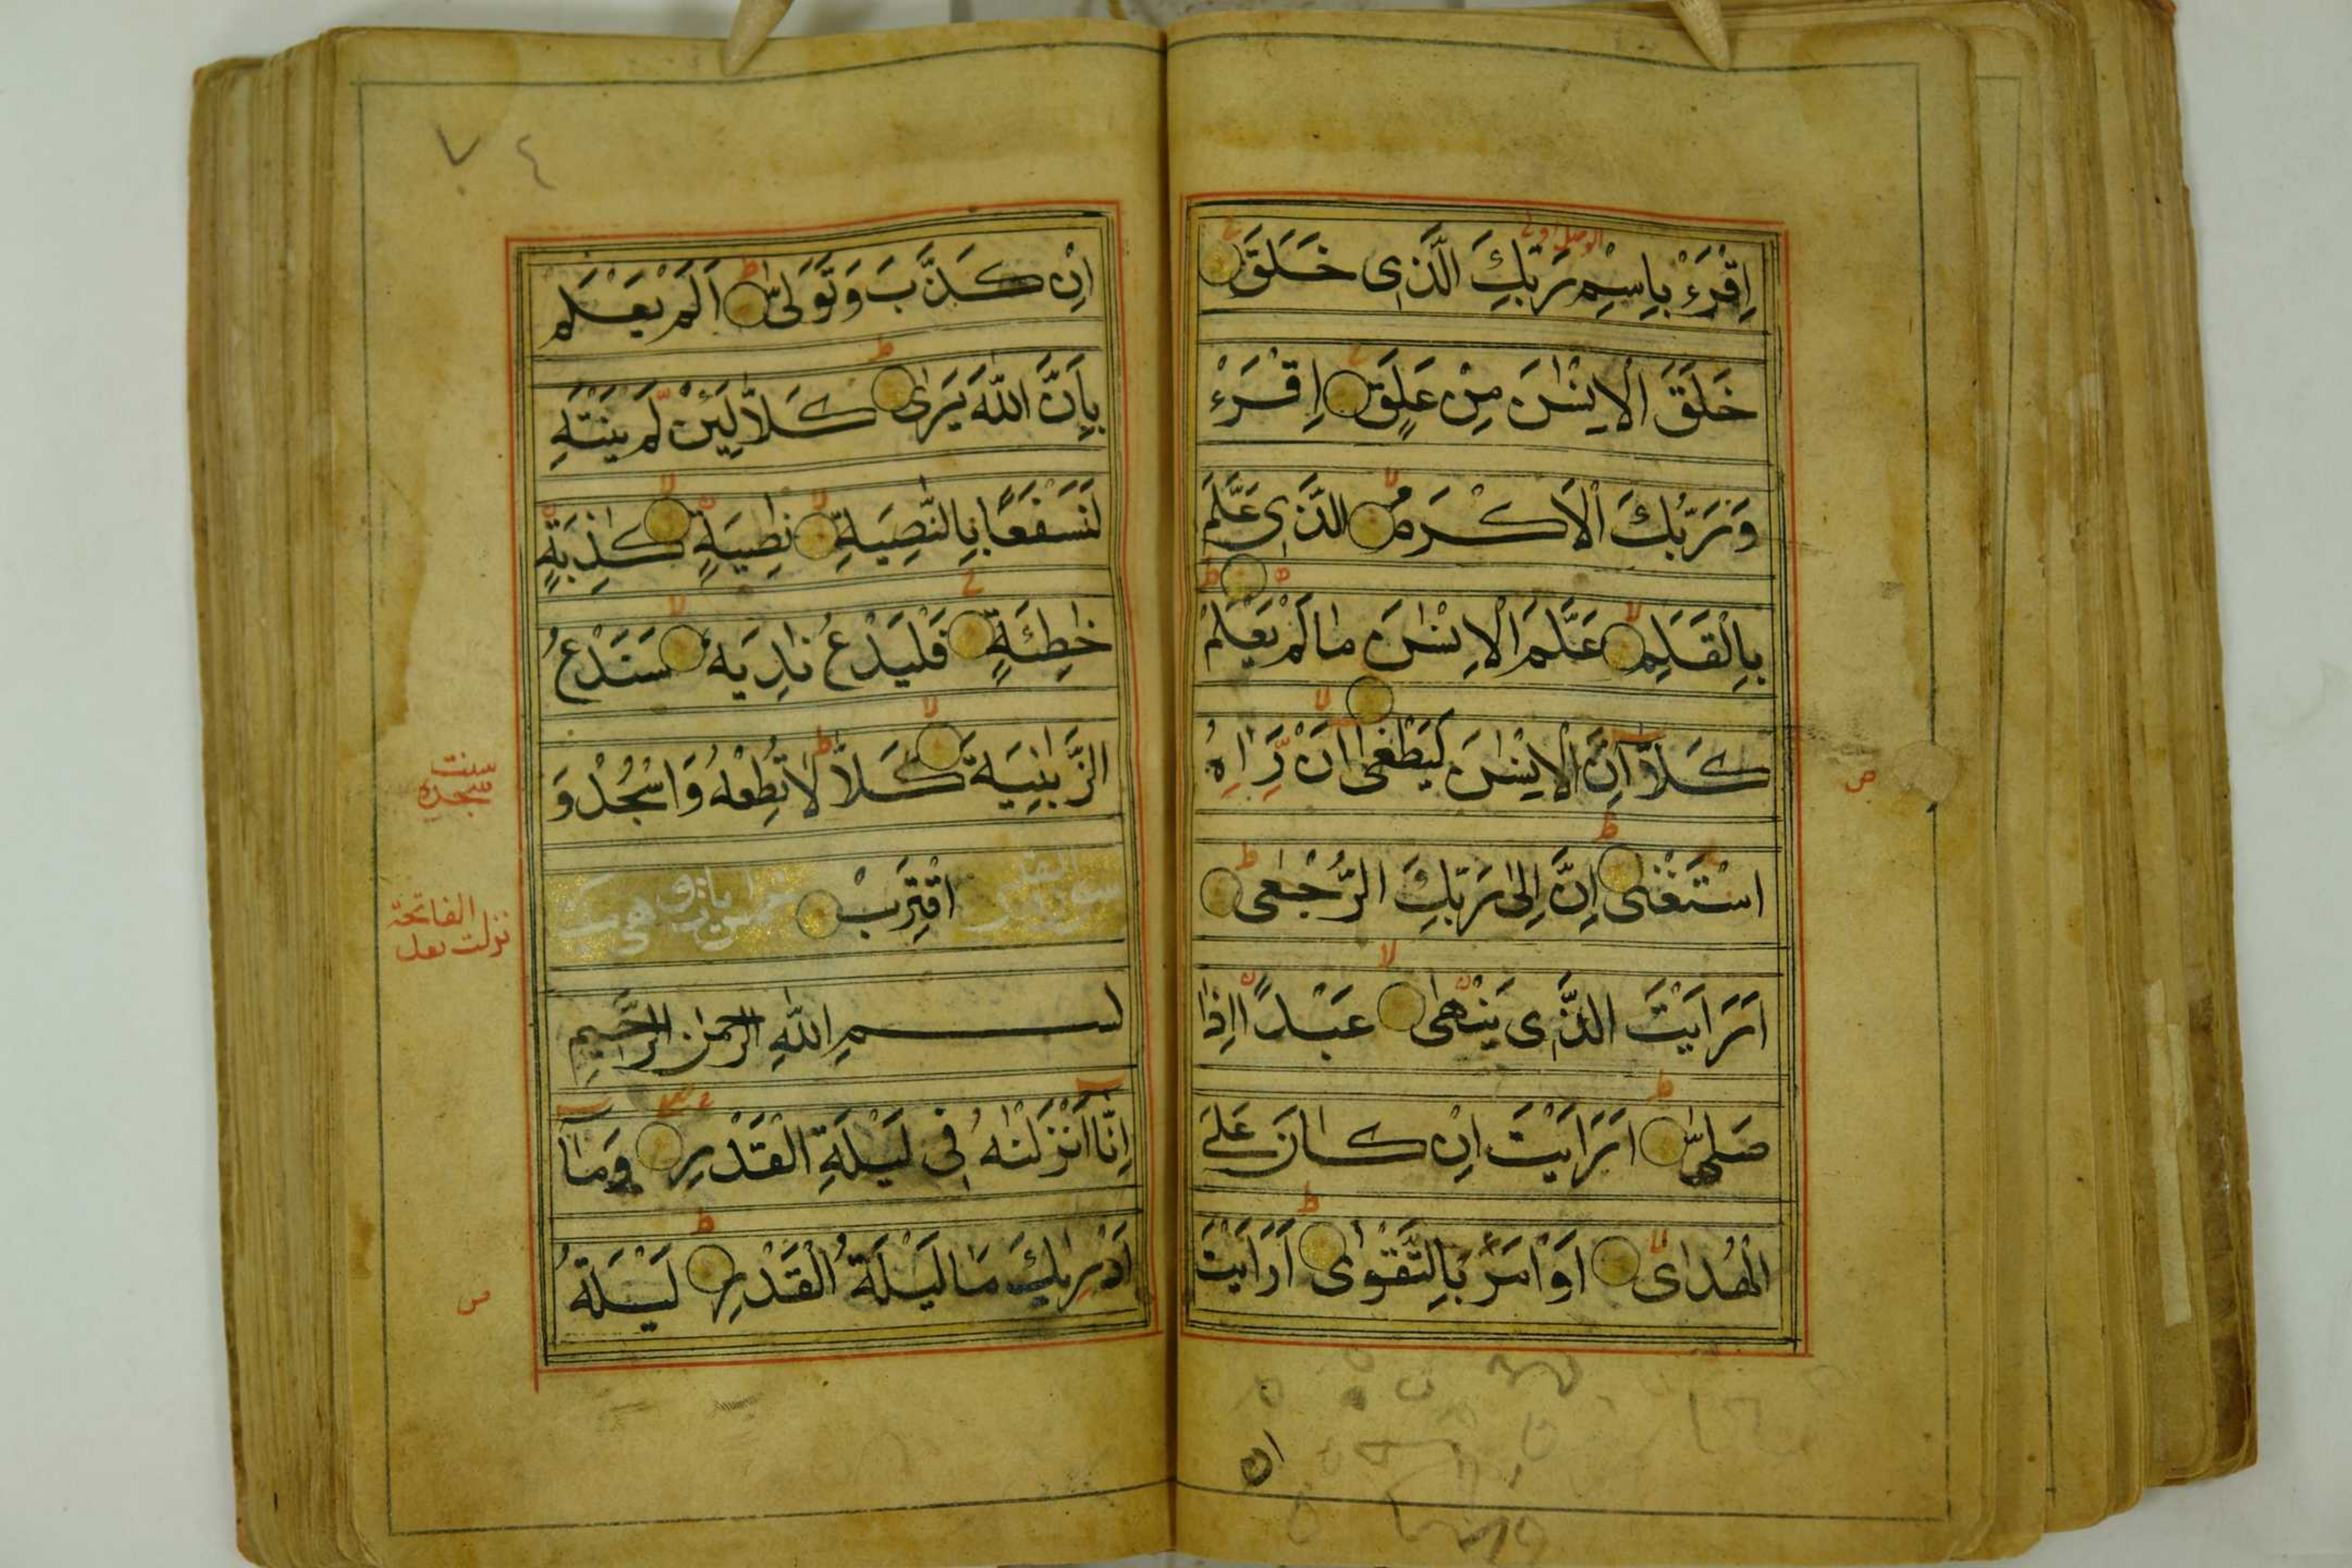 اِقْرَءْ بِاسْمِ رَبِّكَ الَّذِي خَلَقَ
خَلَقَ الْاِنْسٰنَ مِنْ عَلَقٍ اِقْرَءْ
وَرَبُّكَ الْاَكْرَمُ الَّذِي عَلَّمَ
بِالْقَلَمِ عَلَّمَ الْاِنْسٰنَ مٰا لَمْ يَعْلَمْ
كَلَّآ اِنَّ الْاِنْسٰنَ لَيَطْغٰى اَنْ رَاٰهُ
اسْتَغْنٰى اِنَّ اِلٰى رَبِّكَ الرُّجْعٰى
اَرَاَيْتَ الَّذِي يَنْهٰى عَبْدًا اِذٰا
صَلّٰى اَرَاَيْتَ اِنْ كٰانَ عَلَى
الْهُدٰى اَوْ اَمَرَ بِالتَّقْوٰى اَرَاَيْتَ
٧٤
اِنْ كَذَّبَ وَتَوَلّٰى اَلَمْ يَعْلَمْ
بِاَنَّ اللّٰهَ يَرٰى كَلَّا لَئِنْ لَمْ يَنْتَهِ
لَنَسْفَعًا بِالنّٰصِيَةِ نٰصِيَةٍ كٰذِبَةٍ
خٰاطِئَةٍ فَلْيَدْعُ نٰادِيَهُ سَنَدْعُ
الزَّبٰنِيَةَ كَلَّا لَا تُطِعْهُ وَاسْجُدْ وَ
سنت
سجده
اقْتَرِبْ
الفاتحة
نزلت بعد
بسم اللّٰهِ الرحمٰن الرَّحيمِ
اِنَّآ اَنْزَلْنٰهُ فِي لَيْلَةِ الْقَدْرِ وَمَآ
اَدْرٰيكَ مَا لَيْلَةُ الْقَدْرِ لَيْلَةُ